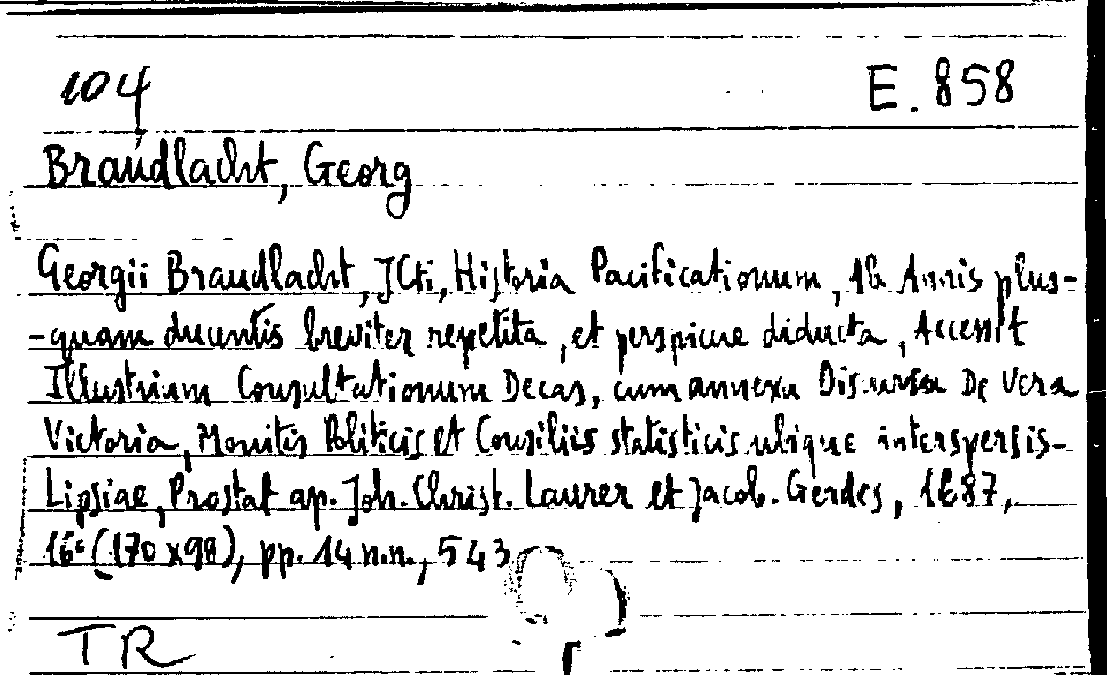 104 E. 858
Braudlacht, Georg
Georgii Braudlacht, JCti, Historia Pacificationum, Ab Annis plus-
-quam ducentis breviter repetita, et perspicue diducta, Accessit
Illustrium Consultationum Decas, cum annexu Discursu De Vera
Victoria, Monitis Politicis et Consiliis statisticis ubique interspersis-
Lipsiae, Prostat ap. Joh. Christ. Laurer et Jacob. Gerdes, 1687,
16° (170 x 98), pp. 14 n.n., 543
TR